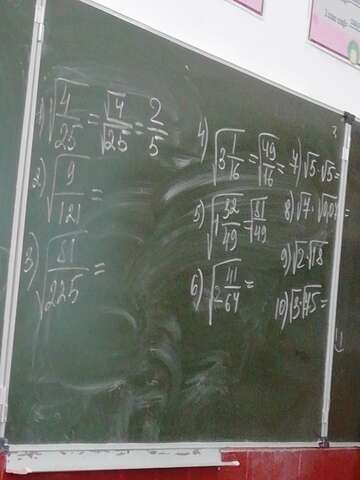 1) √4/25 = √4/√25 = 2/5
2) √9/121 =
3) √81/225 =
4) √3 1/16 = √49/16 =
5) √1 32/49 = √81/49
6) √2 11/64 =
7) √5·√5 =
9) √2·√18
10) √3·√75 =